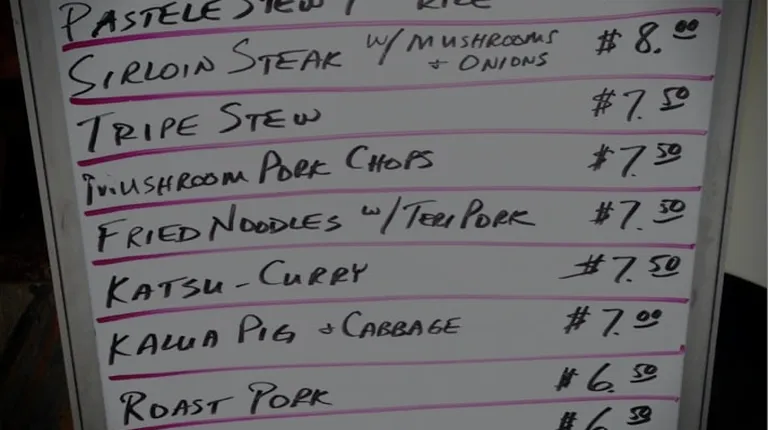 PASTELE STEW / RICE
SIRLOIN STEAK W/ MUSHROOMS & ONIONS $8.00
TRIPE STEW $7.50
MUSHROOM PORK CHOPS $7.50
FRIED NOODLES W/ TERI PORK $7.50
KATSU-CURRY $7.50
KALUA PIG & CABBAGE $7.00
ROAST PORK $6.50
$6.50